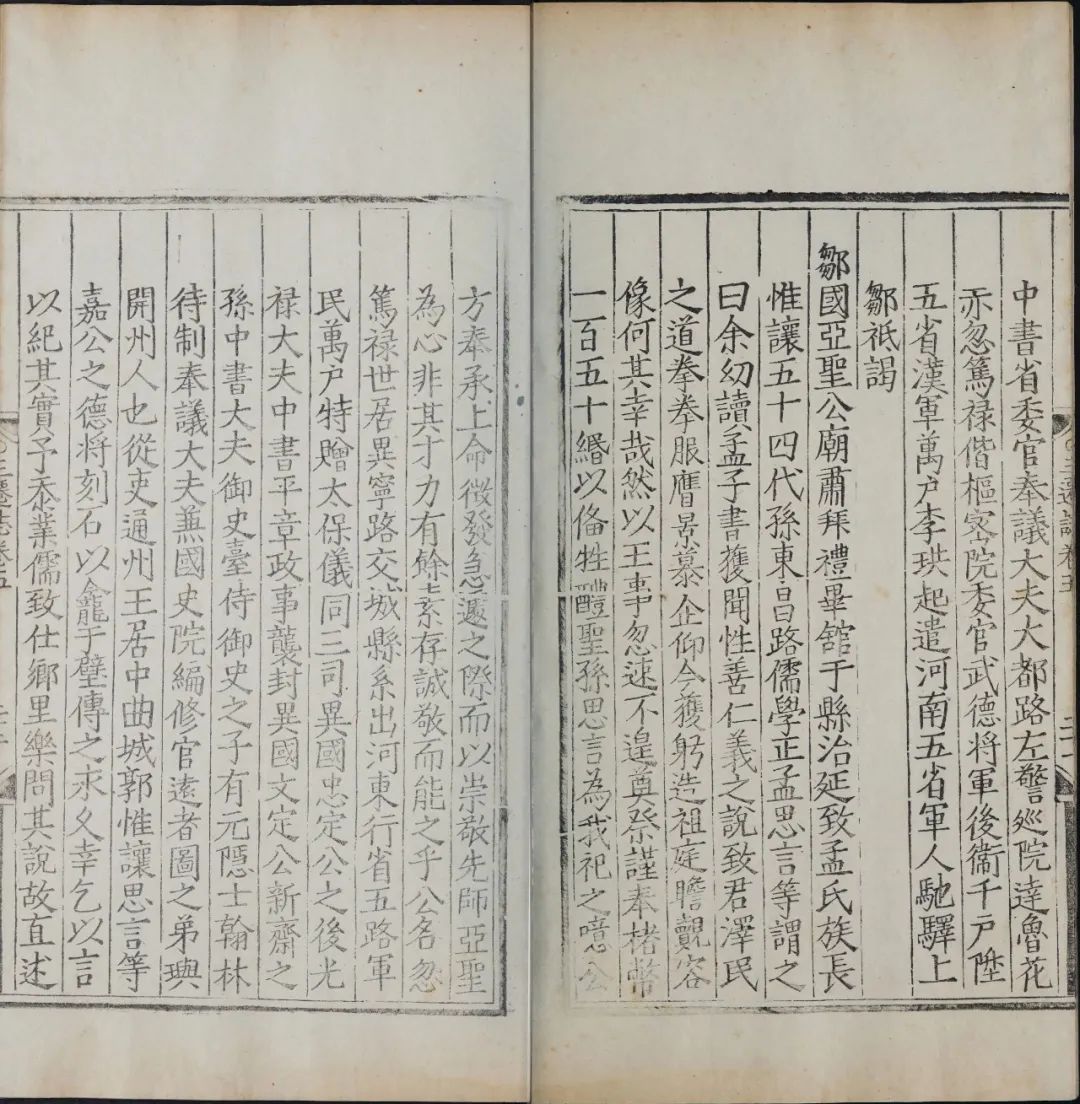 中書省委官奉議大夫大都路左警廵院達魯花
赤忽篤禄偕樞宻院委官武德将軍後衞千户陞
五省漢軍萬户李珙起遣河南五省軍人馳驛上
鄒祇謁
鄒國亞聖公廟肅拜禮畢舘于縣治延致孟氏族長
惟讓五十四代孫東昌路儒學正孟思言等謂之
曰余幼讀孟子書獲聞性善仁義之說致君澤民
之道拳拳服膺景慕企仰今獲躬造祖庭瞻覿容
像何其幸哉然以王事忽速不遑奠祭謹奉楮幣
一百五十緡以俻牲醴聖孫思言為我祀之噫公
三遷誌卷五
方奉承上命徴發急遽之際而以崇敬先師亞聖
為心非其才力有餘素存誠敬而能之乎公名忽
篤禄世居異寧路交城縣系出河東行省五路軍
民萬户特贈太保儀同三司異國忠定公之後光
禄大夫中書平章政事襲封異國文定公新齋之
孫中書大夫御史臺侍御史之子有元隱士翰林
待制奉議大夫兼國史院編修官遠者圖之弟璵
開州人也從吏通州王居中曲城郭惟讓思言等
嘉公之德将刻石以龕于壁傳之永久幸乞以言
以紀其實予忝業儒致仕鄉里樂問其說故直述
三遷誌卷五